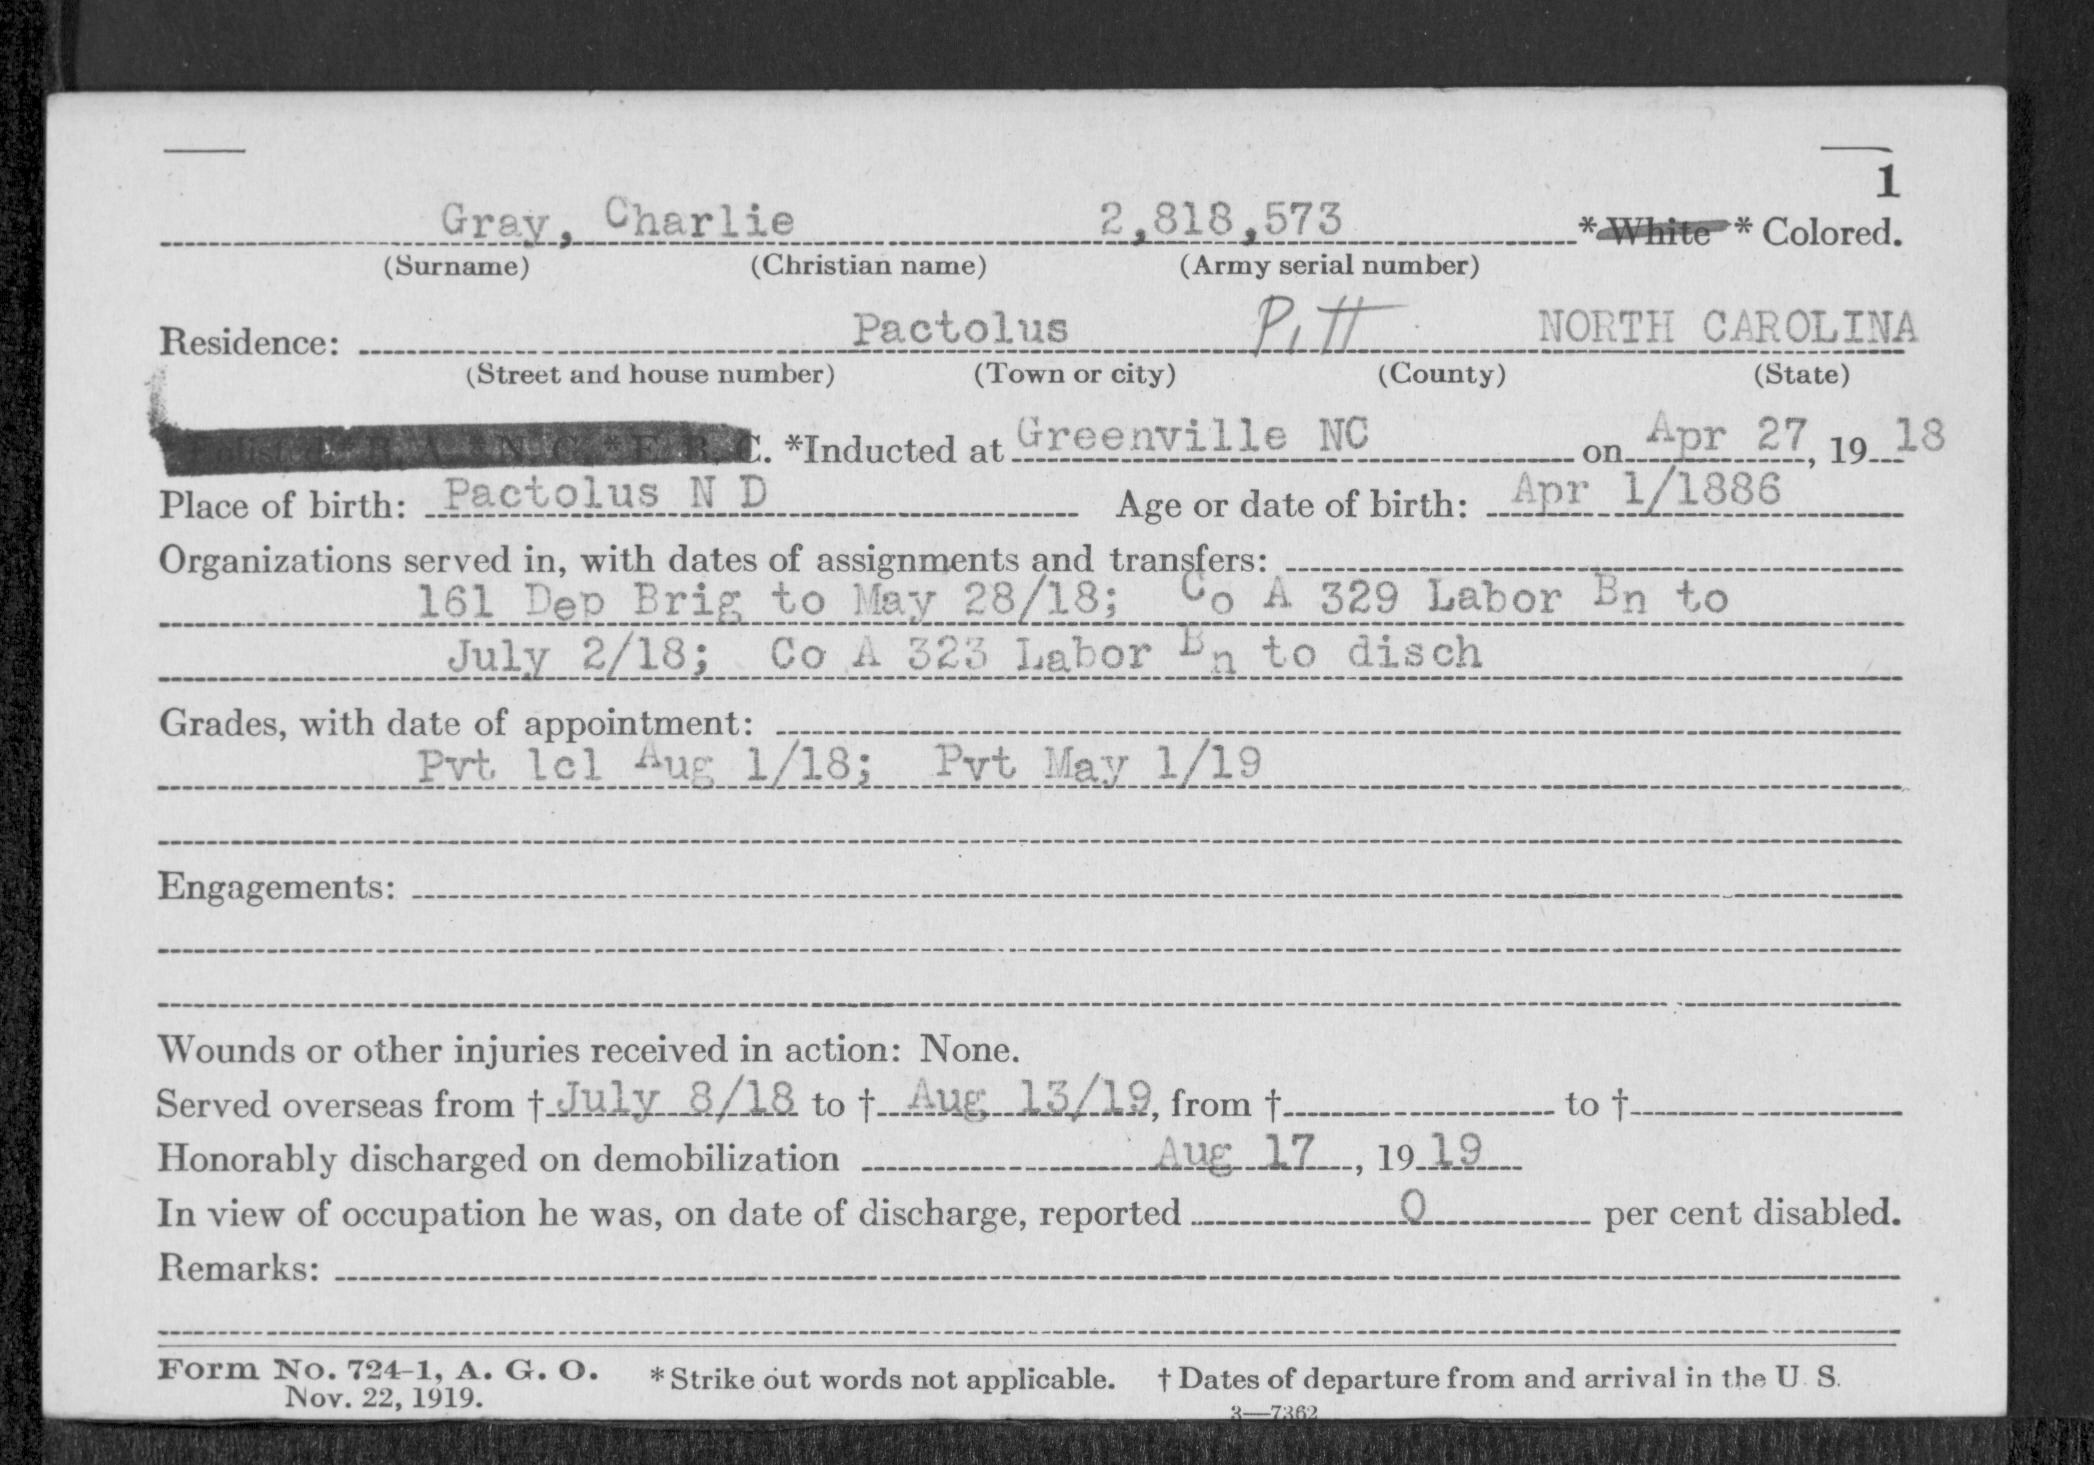 1
Gray, Charlie 2,818,573 *White * Colored.
(Surname) (Christian name) (Army serial number)
Residence: Pactolus Pitt NORTH CAROLINA
(Street and house number) (Town or city) (County) (State)
*Enlisted * R. A. * N. G. * E. R. C. *Inducted at Greenville NC on Apr 27, 19 18
Place of birth: Pactolus N D Age or date of birth: Apr 1/1886
Organizations served in, with dates of assignments and transfers:
161 Dep Brig to May 28/18; Co A 329 Labor Bn to
July 2/18; Co A 323 Labor Bn to disch
Grades, with date of appointment:
Pvt 1cl Aug 1/18; Pvt May 1/19
Engagements:
Wounds or other injuries received in action: None.
Served overseas from † July 8/18 to † Aug 13/19, from † to †
Honorably discharged on demobilization Aug 17, 19 19
In view of occupation he was, on date of discharge, reported 0 per cent disabled.
Remarks:
Form No. 724-1, A. G. O. *Strike out words not applicable. † Dates of departure from and arrival in the U. S.
Nov. 22, 1919.
3—7362